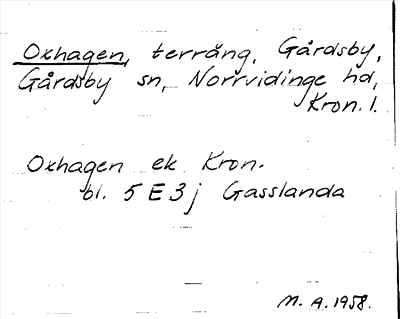 Oxhagen, terräng, Gårdsby,
Gårdsby sn, Norrvidinge hd,
Kron. l.
Oxhagen ek Kron.
bl. 5E3j Gasslanda
M. A. 1958.